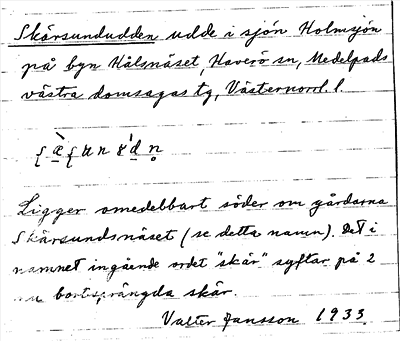 Skärsundudden udde i sjön Holmsjön
på byn Hålsnäset, Haverö sn, Medelpads
västra domsagas tg, Västernorrl. l.
Ligger omedelbart söder om gårdarna
Skärsundsnäset (se detta namn). Det i
namnet ingående ordet "skär" syftar på 2
nu bortsprängda skär.
Valter Jansson 1933.